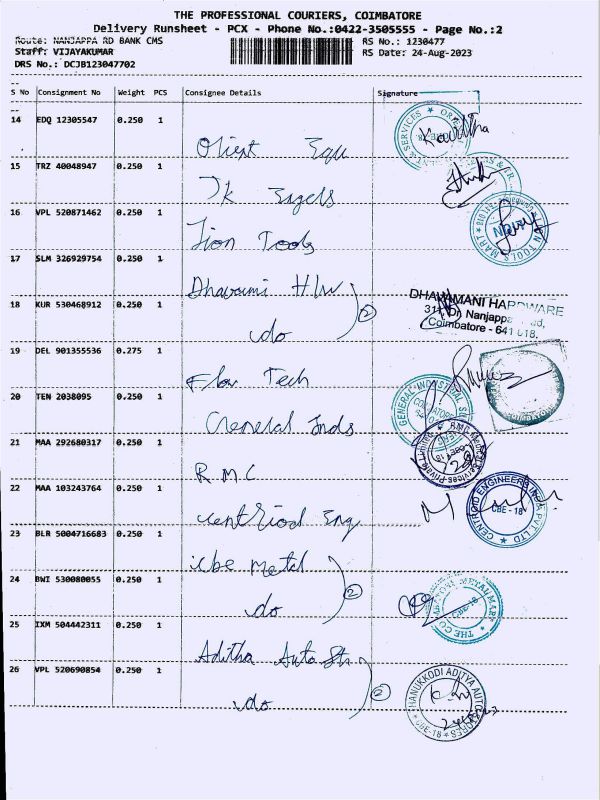 THE PROFESSIONAL COURIERS, COIMBATORE
Delivery Runsheet - PCX - Phone No.:0422-3505555 - Page No.:2
Route: NANJAPPA RD BANK CMS
RS No.: 1230477
Staff: VIJAYAKUMAR
RS Date: 24-Aug-2023
DRS No.: DCJB123047702
S No Consignment No Weight PCS Consignee Details Signature
14 EDQ 12305547 0.250 1
Kavitha
Olient Equ
15 TRZ 40048947 0.250 1
Jk Engels
16 VPL 520871462 0.250 1
TOOLS MART
Jion Tools
17 SLM 326929754 0.250 1
Dhavami H/w
DHAVAMANI HARDWARE
18 KUR 530468912 0.250 1
31, Dr. Nanjappa
2
Coimbatore - 641 018.
do
19 DEL 901355536 0.275 1
Flow Tech
20 TEN 2038095 0.250 1
GENERAL INDUSTRIAL
General Inds
21 MAA 292680317 0.250 1
RMC
22 MAA 103243764 0.250 1
CENTROID ENGINEERS INDIA PVT LTD
CBE - 18
Centriod Eng
23 BLR 5004716683 0.250 1
cbe metal
24 BWI 530080055 0.250 1
2
METAL MART
CBE-18
do
25 IXM 504442311 0.250 1
Aditha Auto Str
26 VPL 520690854 0.250 1
2
DHANUKKODI ADITYA AUTO STORES
CBE-18
do